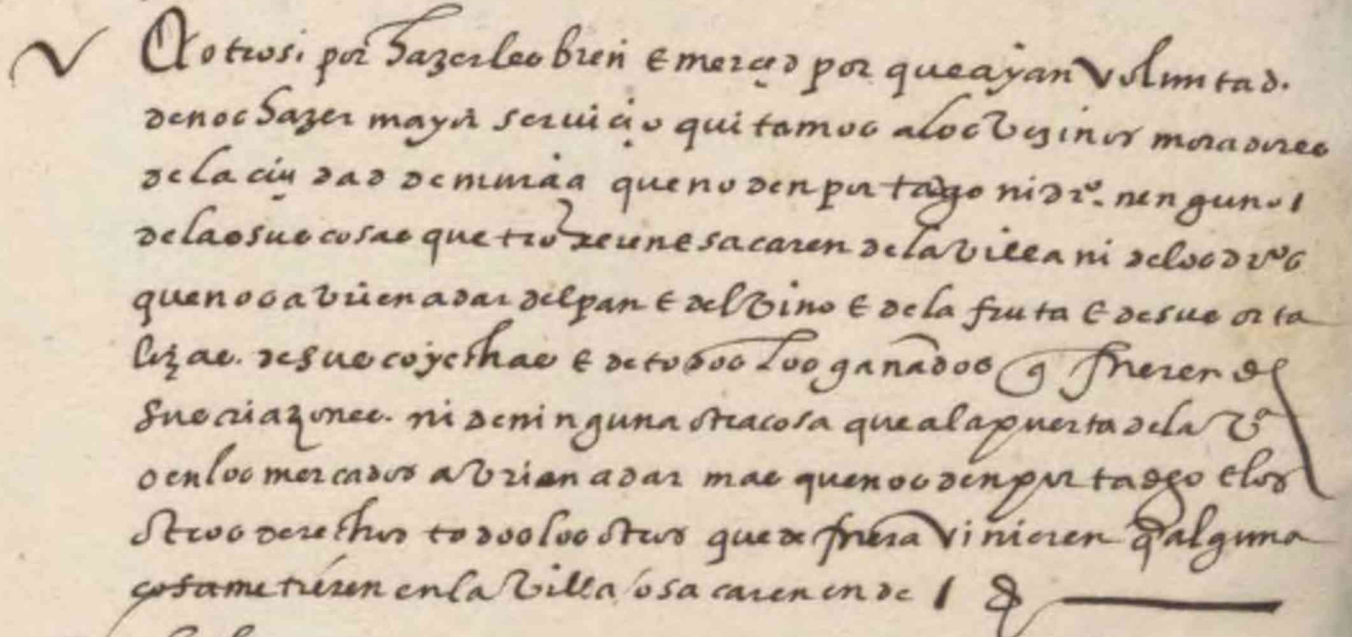 Otrosi por hazerles bien e merçed por que ayan voluntad.
de nos hazer mayor seruiçio quitamos a los vezinos moradores
de la çiudad de murçia que no den portadgo ni dro. nenguno
de las sus cosas que troxeren e sacaren de la villa ni de los dros
que nos avrien a dar del pan e del vino e de la fruta e de sus orta
lizas. de sus cojechas e de todos los ganados q fueren de
sus criazones. ni de ninguna otra cosa que a la puerta de la va
o en los mercados avrian a dar mas que nos den portadgo e los
otros derechos todos los otros que de fuera vinieren q alguna
cosa metieren en la villa o sacaren ende